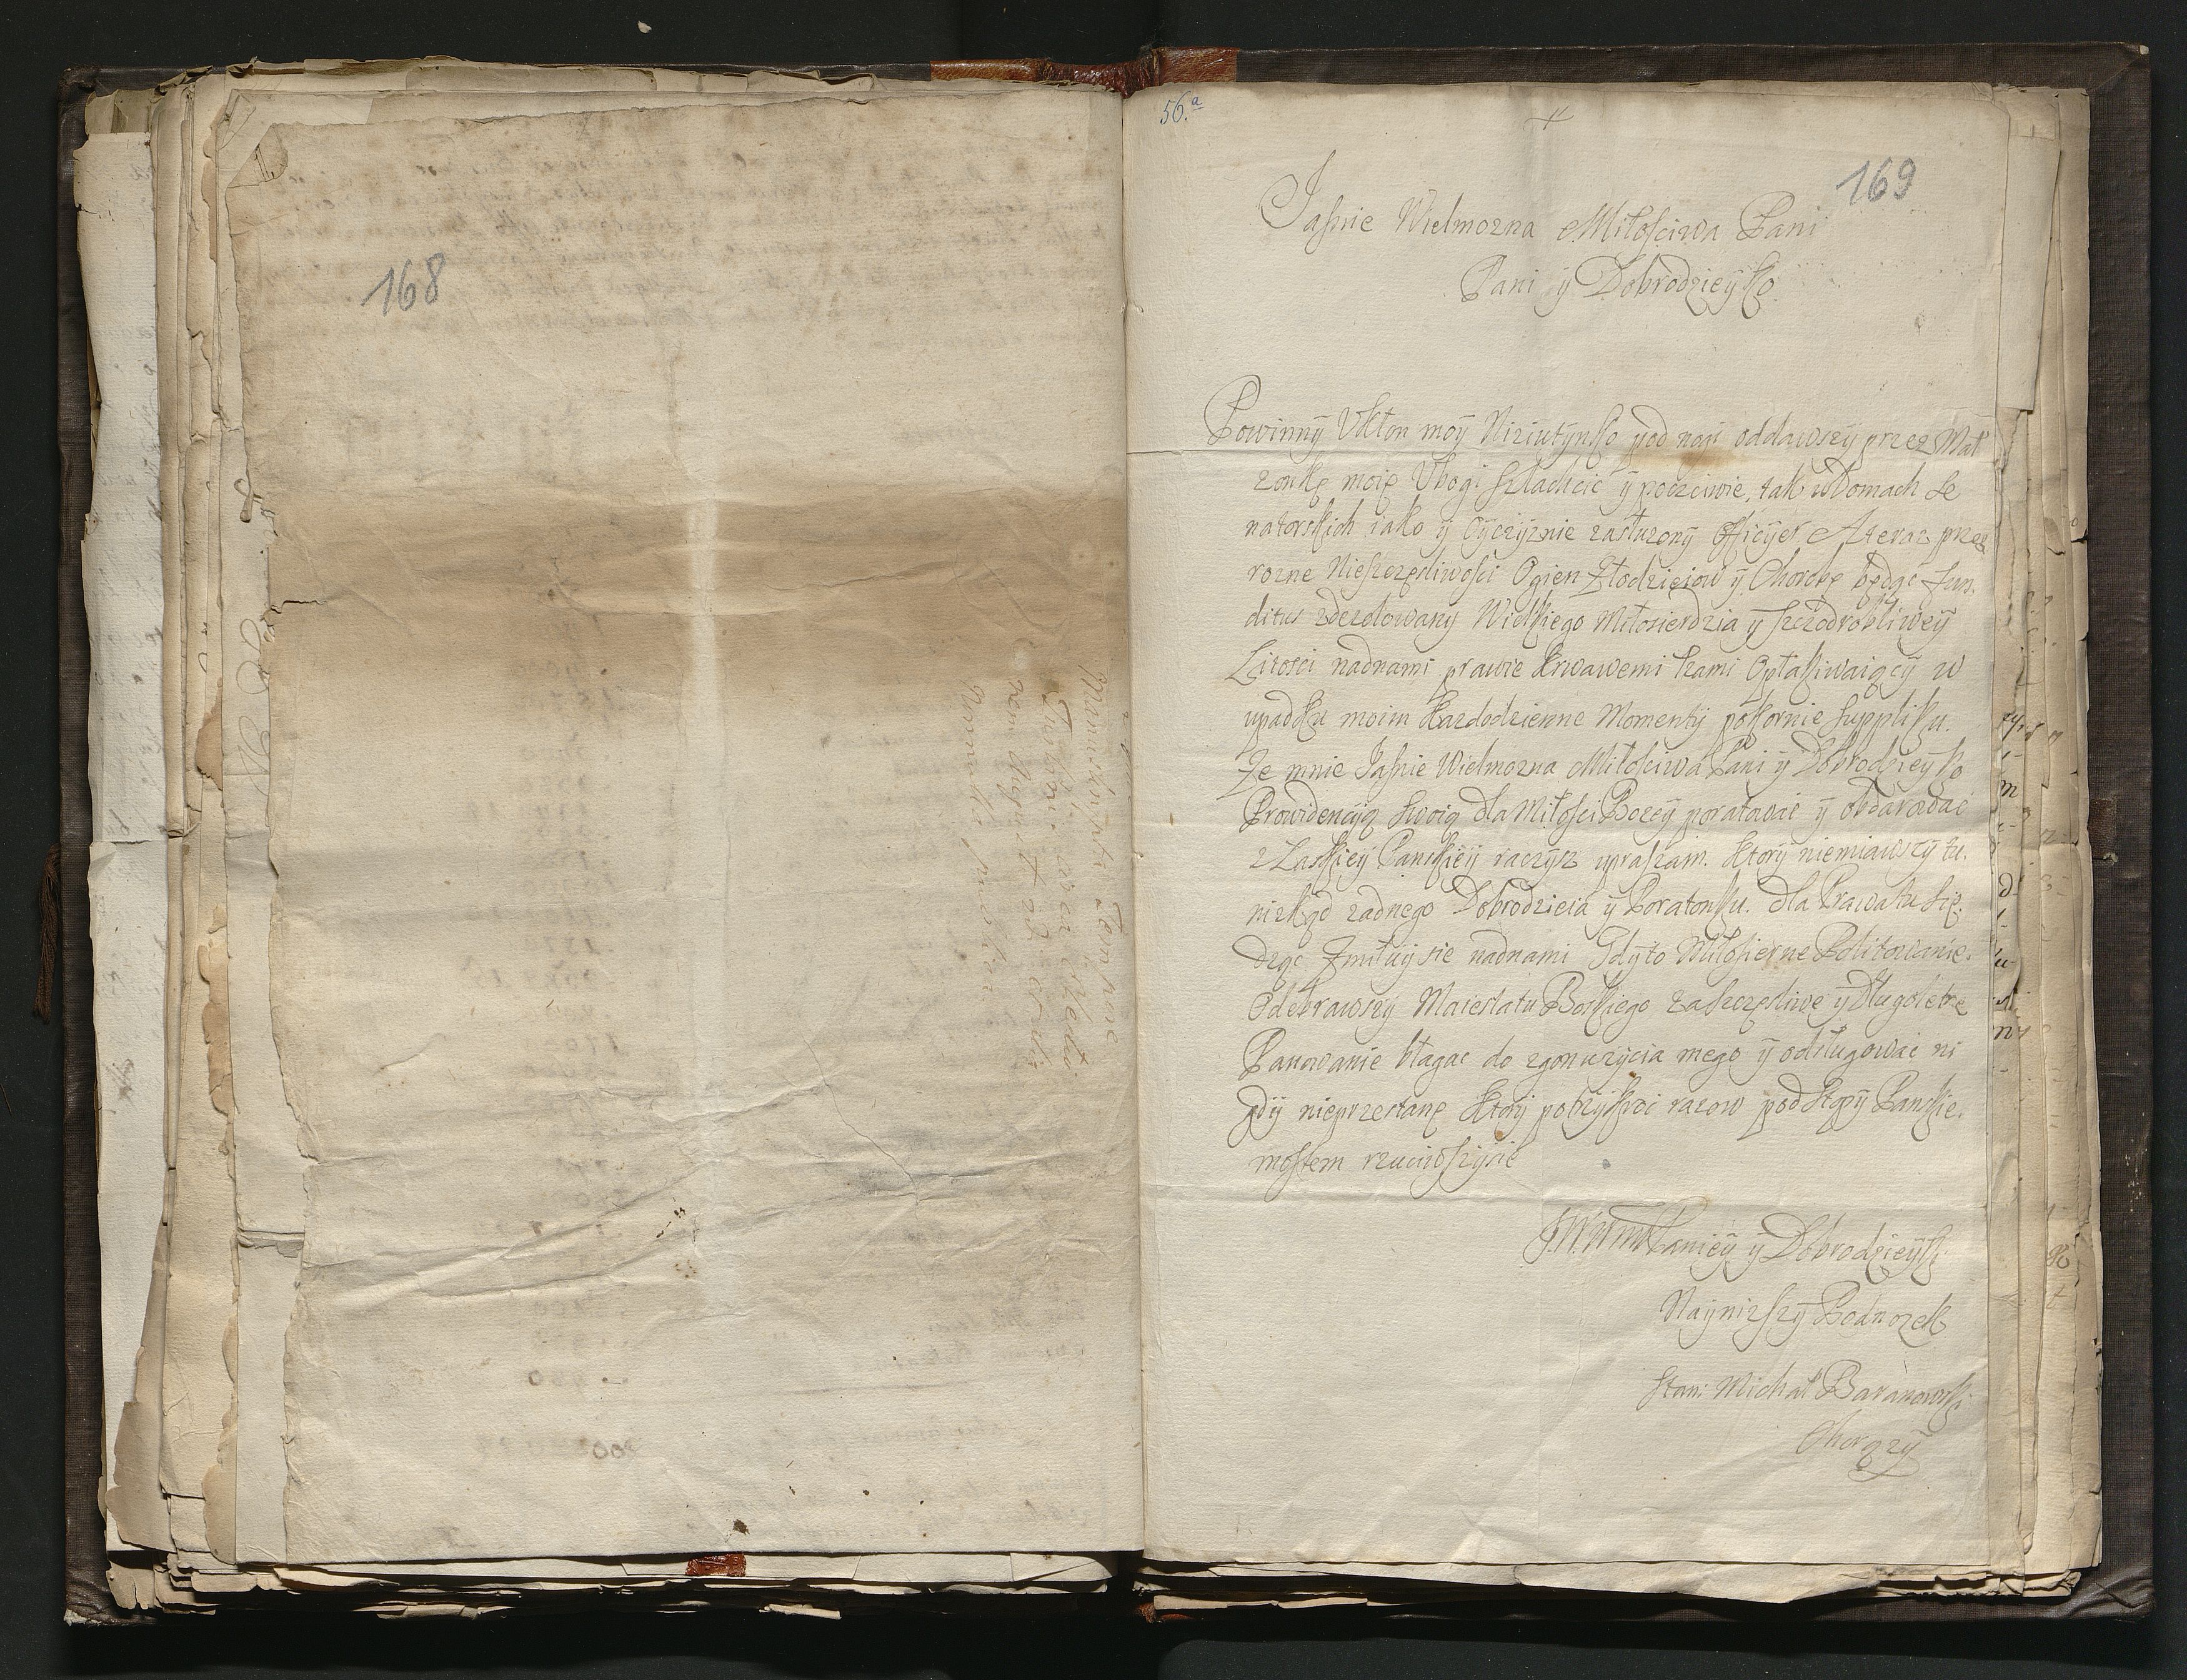 168
Manuskripta
56.a
169
Jaśnie Wielmozna Miłosciwa Pani
Pani ÿ Dobrodzieÿko
Powinnÿ Ukłon moÿ pod nogi oddawszÿ przez Mał
zonkę moię Ubogi szlachcic ÿ poczciwie, tak w Domach Se
natorskich iako ÿ Oÿczÿznie zasłuzonÿ Officÿer A teraz przez
rozne Nieszczęsliwosci Ogien Złodzieiow ÿ Chorobę będąc Fun.
ditus zdezolowanÿ Wielkiego Miłosierdzia ÿ szczodrobliweÿ
Litosci nadnami prawie krwawemi łzami Opłakiwaiącÿ w
upadku moim kazdodzienne Momentÿ pokornie suppliku.
Ze mnie Jaśnie Wielmozna Miłosciwa Pani ÿ Dobrodzieÿko
Prowidencÿą swoią dla Miłosci Bozeÿ poratować ÿ obdarować
z Laskieÿ Panskieÿ raczÿsz upraszam. Ktorÿ niemiawszÿ tu.
nizkąd zadnego Dobrodzieia ÿ Poratonku. dla Prawa tu się.
dząc Zmiłuÿ sie nadnami Gdÿ to Miłosierne Politowanie.
Odebrawszÿ Maiestatu Boskiego zaszczęsliwe ÿ Długoletne
Panowanie błagac do zgonu zÿcia mego ÿ odsługować ni
gdÿ nieprzestanę Ktorÿ razow pod stopÿ Panskie.
mostem rzuciwszÿ sie
J.W.WMM Panieÿ ÿ Dobrodzieÿki
Naÿnizszÿ Podnozek
Stani Michał Baranowski
Chorązÿ